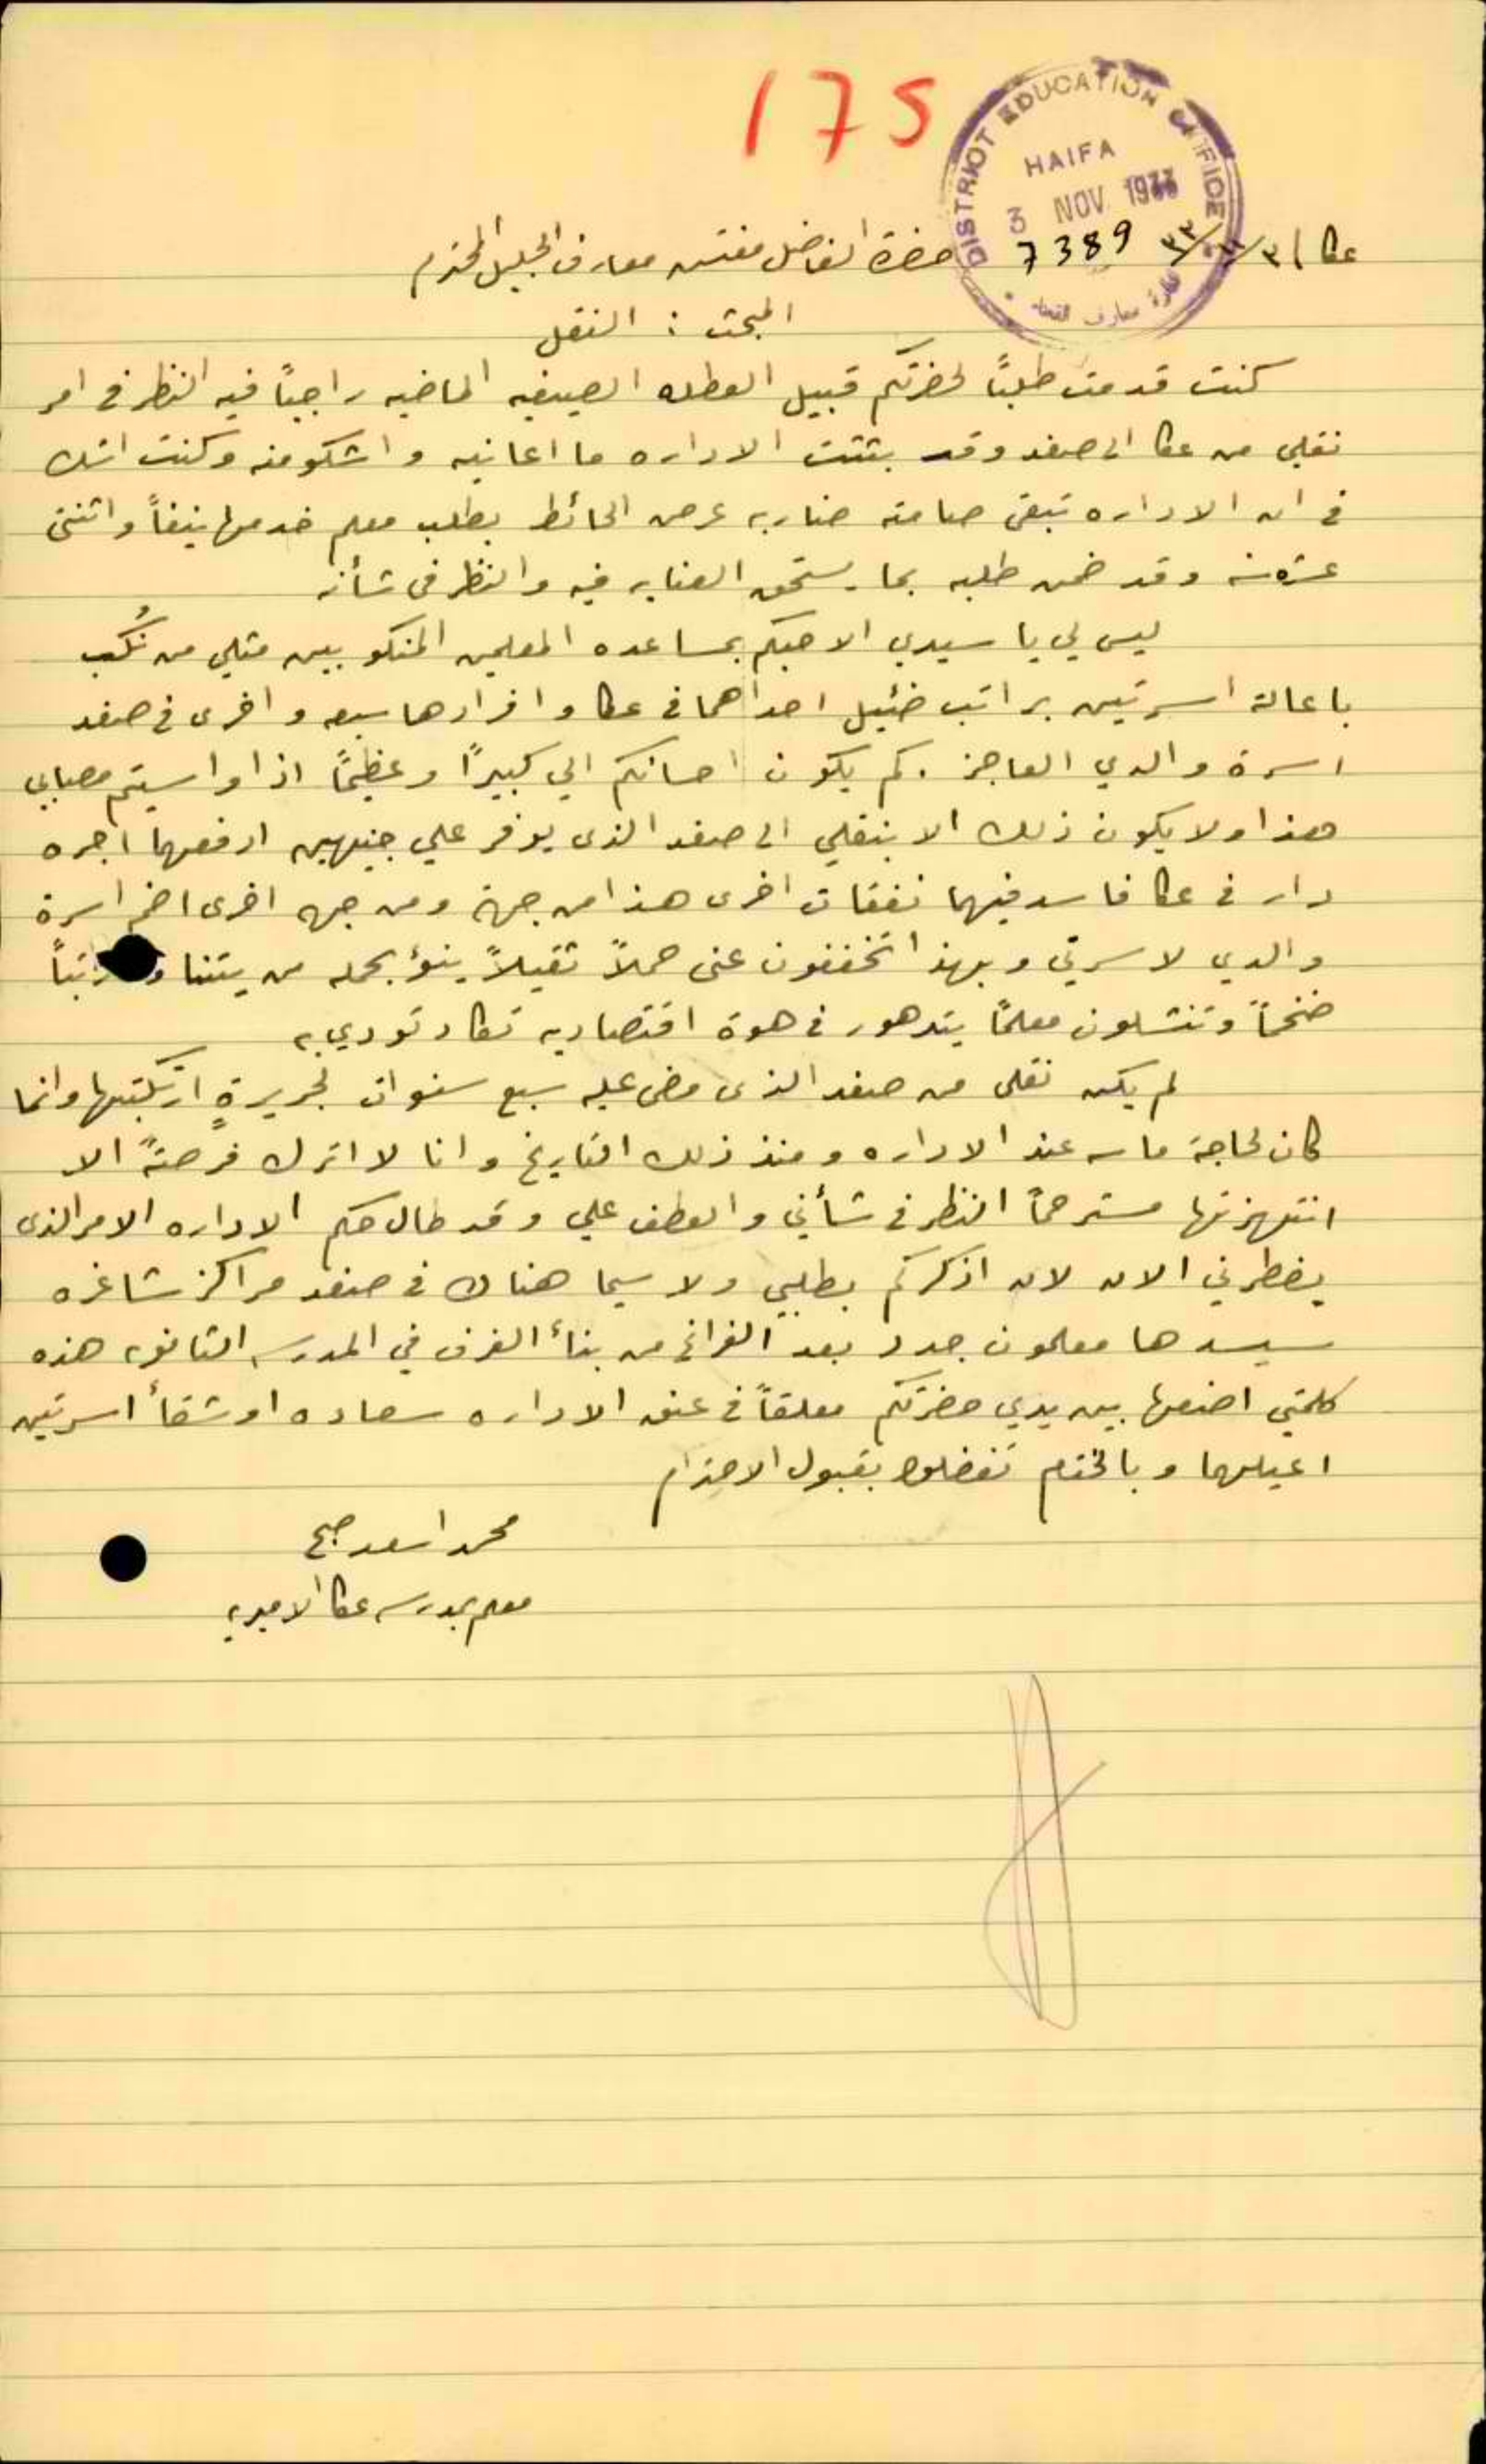 175
DISTRICT EDUCATION OFFICE
HAIFA
3 NOV 1933
7389
عكا
حضرة الفاضل مفتش معارف الجليل المحترم
المبحث : النقل
كنت قدمت طلبًا لحضرتكم قبيل العطله الصيفيه الماضيه راجيًا فيه النظر في امر
نقلي من عكا الى صفد وقد بثثت الاداره ما اعانيه واشكو منه وكنت اشك
في ان الاداره تبقى صامته ضاربه عرض الحائط بطلب معلم خدمها نيفاً واثنتى
عشرة سنه وقد ضمن طلبه بما يستحق العنايه فيه والنظر فى شأنه
ليس لي يا سيدي الا حبكم بمساعده المعلمين المنكوبين مثلي من نُكب
باعالة اسرتين براتب ضئيل احداهما في عكا وافرادها سبعه واخرى في صفد
اسرة والدي العاجز . كم يكون احسانكم الي كبيرًا وعظيمًا اذا واسيتم مصابي
هذا ولا يكون ذلك الا بنقلي الى صفد الذى يوفر علي جنيهين ادفعهما اجره
دار في عكا فاسد فيهما نفقات اخرى هذا من جهة ومن جهه اخرى اضم اسرة
والدي لاسرتي وبهذا تخففون عنى حملاً ثقيلاً ينوُ بحمله من يتناول راتباً
ضخماً وتنتشلون معلمًا يتدهور في هوة اقتصاديه تكاد تودي به
لم يكن نقلى من صفد الذى مضى عليه سبع سنوات لجريرةٍ ارتكبتها وانما
كان لحاجة ماسه عند الاداره ومنذ ذلك التاريخ وانا لا اترك فرصةً الا
انتهزتها مسترحمًا النظر في شأني والعطف علي وقد طال حكم الاداره الامر الذى
يضطرني الان لان اذكركم بطلبي ولا سيما هناك في صفد مراكز شاغره
سيسدها معلمون جدد بعد الفراغ من بناء الغرف في المدرسه الثانويه هذه
كلمتي اضعها بين يدي حضرتكم معلقاً في عنق الاداره سعاده او شقاء اسرتين
اعيلهما وبالختام تفضلوا بقبول الاحترام
محمد اسعد صبح
معلم بمدرسه عكا الاميريه